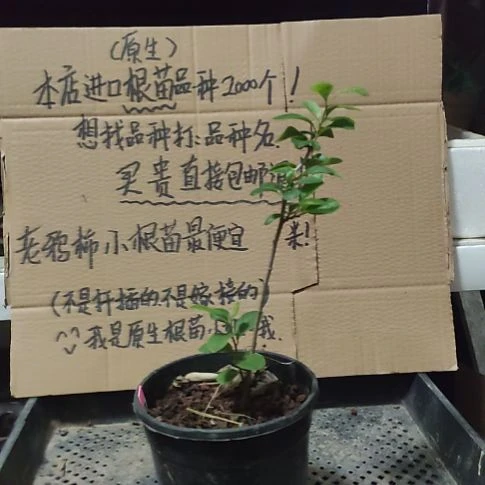 (原生)
本店进口根苗品种2000个!
想找品种打:品种名.
买贵直接包邮退
老鸦柿小根苗最便宜 米!
(不是扦插的.不是嫁接的)
我是原生根苗 我.